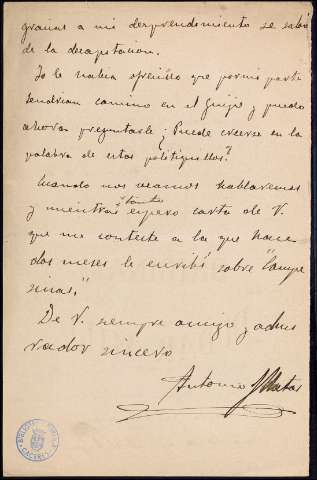 gracias a mi desprendimiento se salvó
de la decapitacion.
Yo le habia ofrecido que por mi parte
tendrian camino en el Guijo y puedo
ahora preguntarle ¿Puede creerse en la
palabra de estos politiquillos?
Cuando nos veamos hablaremos
y mientras tanto espero carta de V.
que me conteste a la que hace
dos meses le escribí sobre "Campe
sinas."
De V. siempre amigo y admi
rador sincero
Antonio
BIBLIOTECA PUBLICA
CACERES